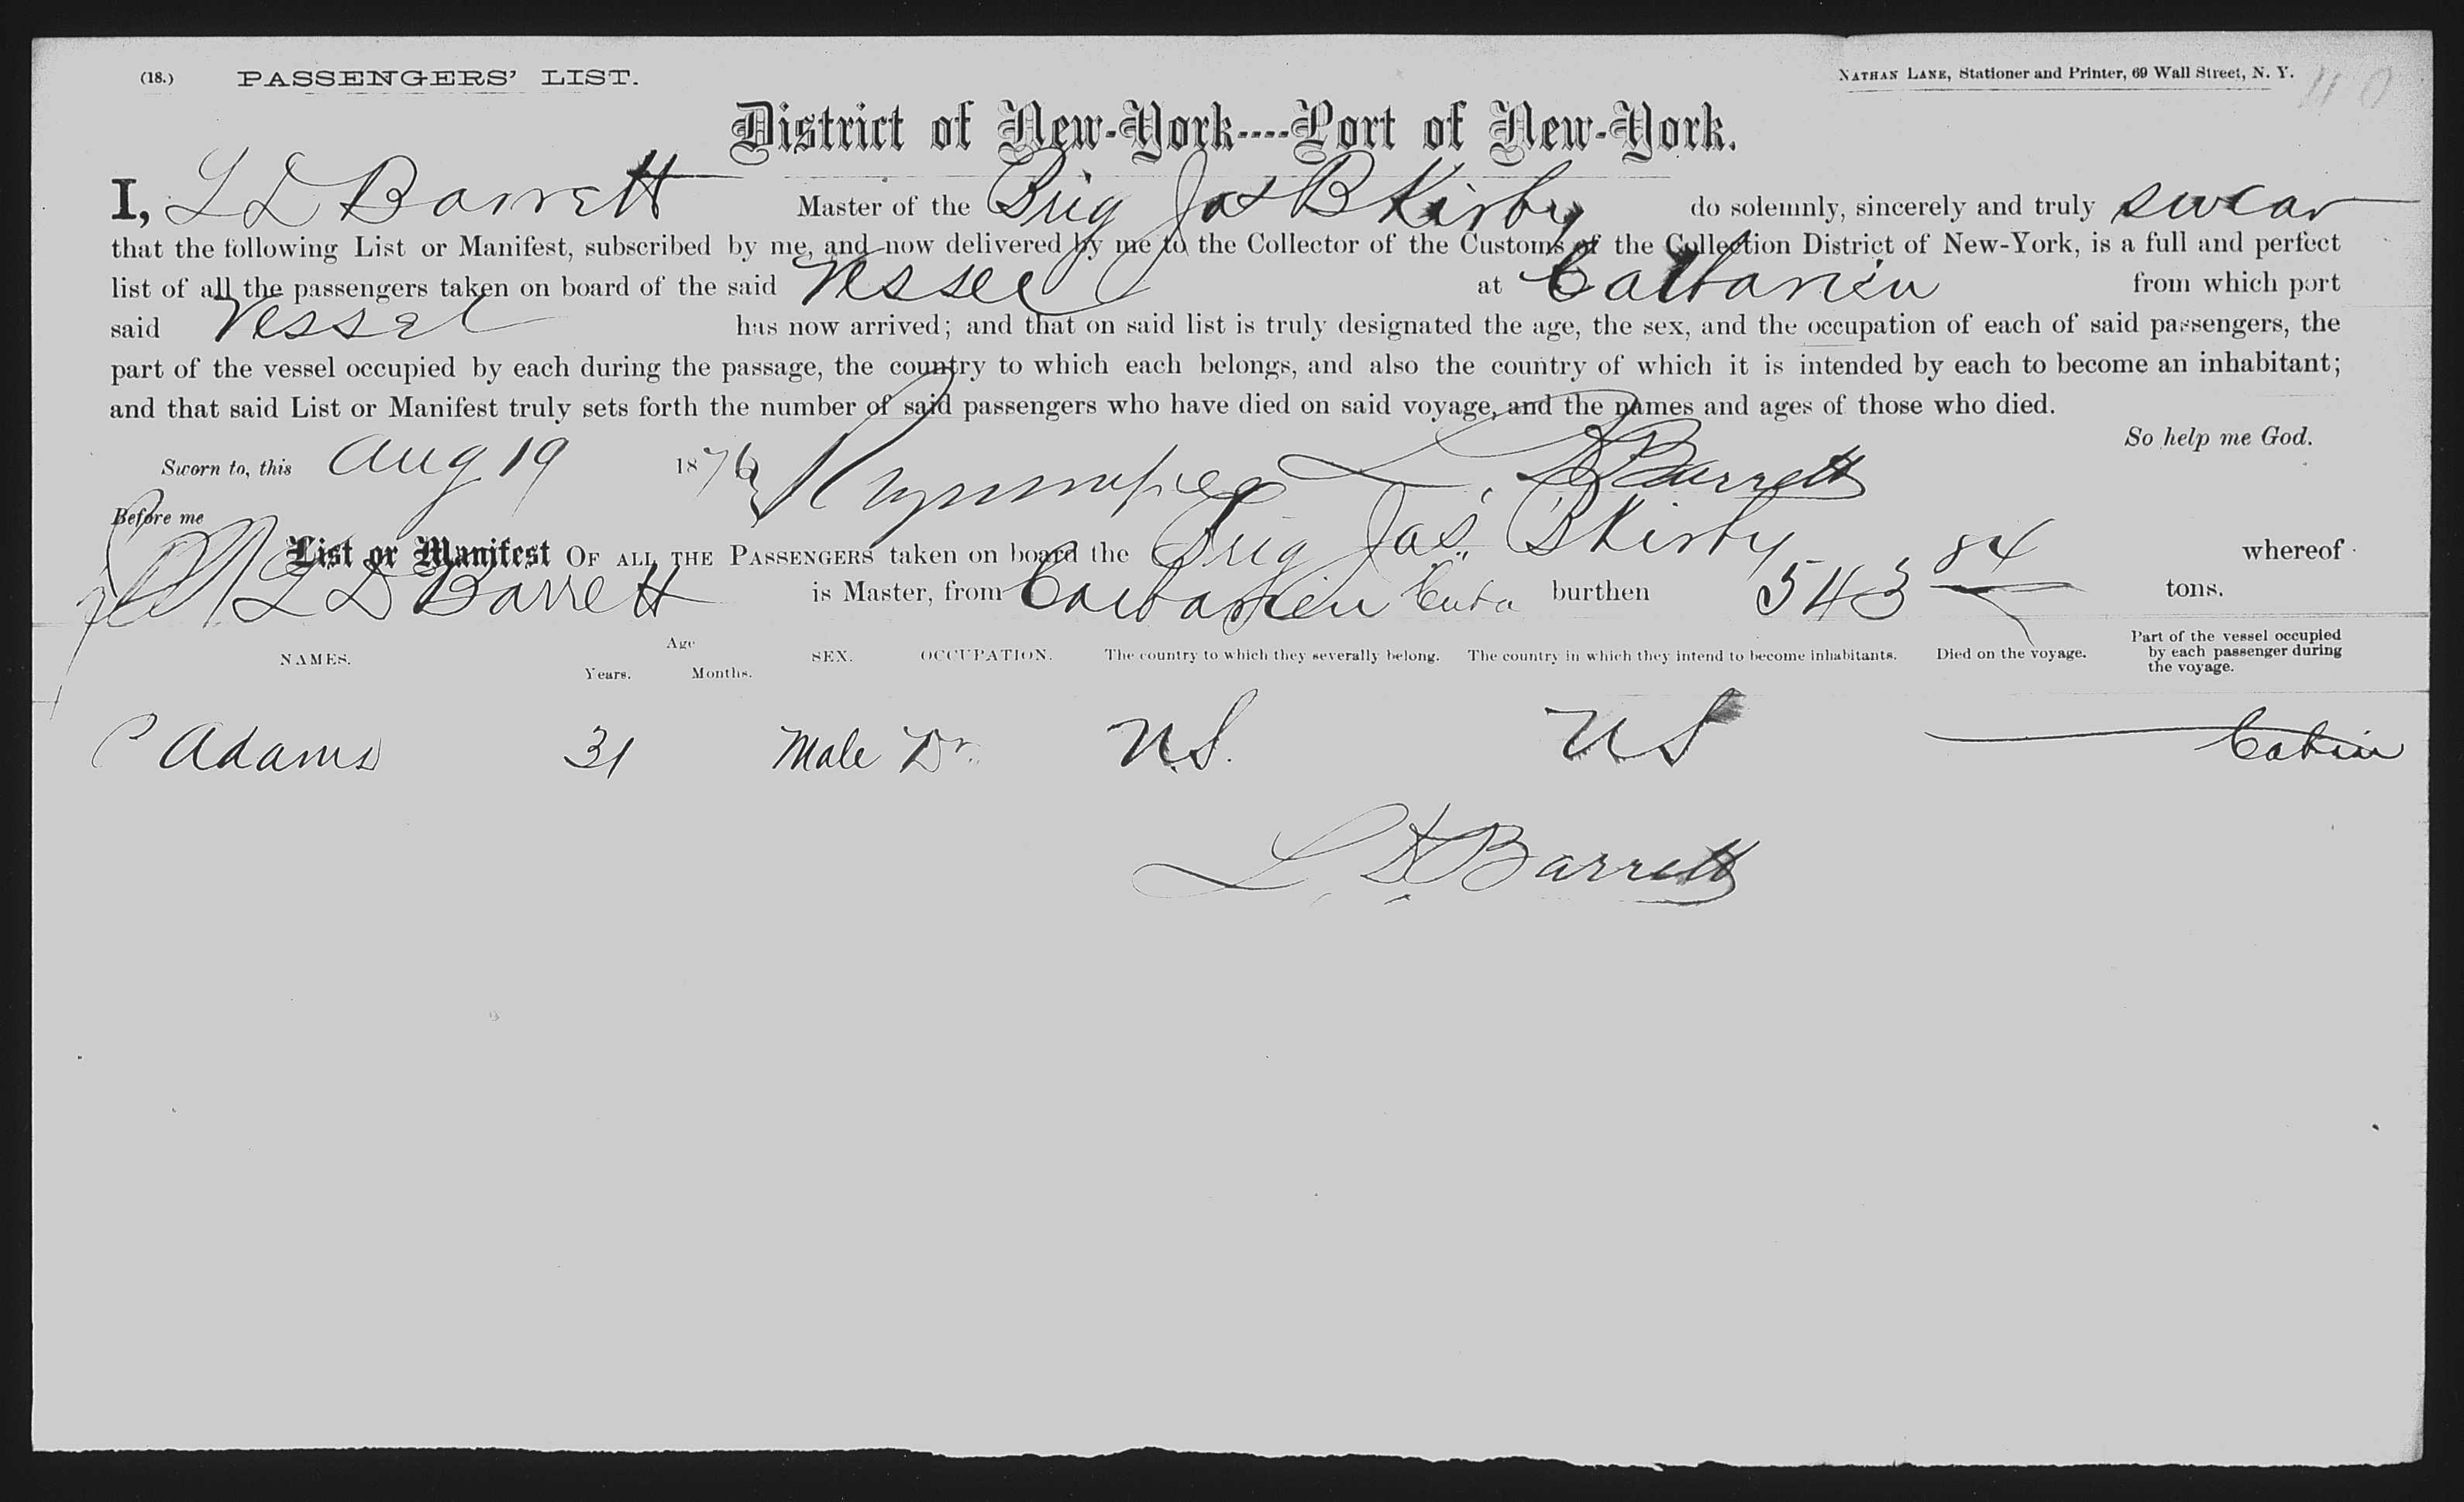 (18.) PASSENGERS' LIST. NATHAN LANE, Stationer and Printer, 69 Wall Street, N. Y.
District of New-York----Port of New-York.
I, L D Barrett Master of the Brig Jas B Kirby do solemnly, sincerely and truly swear
that the following List or Manifest, subscribed by me, and now delivered by me to the Collector of the Customs of the Collection District of New-York, is a full and perfect
list of all the passengers taken on board of the said Vessel at Caibarien from which port
said Vessel has now arrived; and that on said list is truly designated the age, the sex, and the occupation of each of said passengers, the
part of the vessel occupied by each during the passage, the country to which each belongs, and also the country of which it is intended by each to become an inhabitant;
and that said List or Manifest truly sets forth the number of said passengers who have died on said voyage, and the names and ages of those who died.
So help me God.
Sworn to, this Aug 19 1876 L. D Barrett
Before me
List or Manifest OF ALL THE PASSENGERS taken on board the Brig Jas. B Kirby whereof
L D Barrett is Master, from Caibarien Cuba burthen 543 84 tons.
NAMES. Age Years. Months. SEX. OCCUPATION. The country to which they severally belong. The country in which they intend to become inhabitants. Died on the voyage. Part of the vessel occupied by each passenger during the voyage.
C Adams 31 Male Dr. U.S. U S Cabin
L. D. Barrett